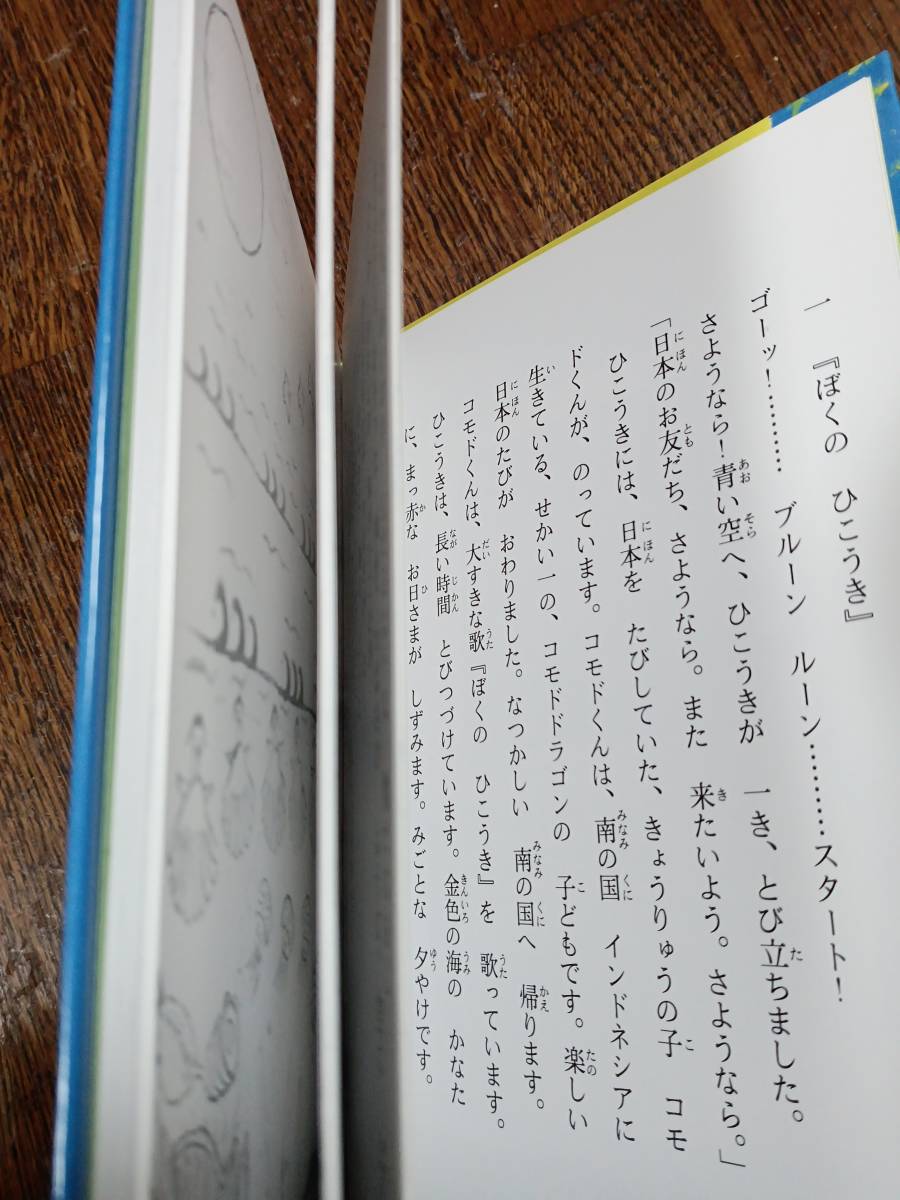 一 『ぼくの ひこうき』
ゴーッ!………… ブルーン ルーン………スタート!
さようなら!青い空へ、ひこうきが 一き、とび立ちました。
「日本のお友だち、さようなら。また 来たいよう。さようなら。」
ひこうきには、日本を たびしていた、きょうりゅうの子 コモ
ドくんが、のっています。コモドくんは、南の国 インドネシアに
生きている、せかい一の、コモドドラゴンの 子どもです。楽しい
日本のたびが おわりました。なつかしい 南の国へ 帰ります。
コモドくんは、大すきな歌『ぼくの ひこうき』を 歌っています。
ひこうきは、長い時間 とびつづけています。金色の海の かなた
に、まっ赤な お日さまが しずみます。みごとな 夕やけです。